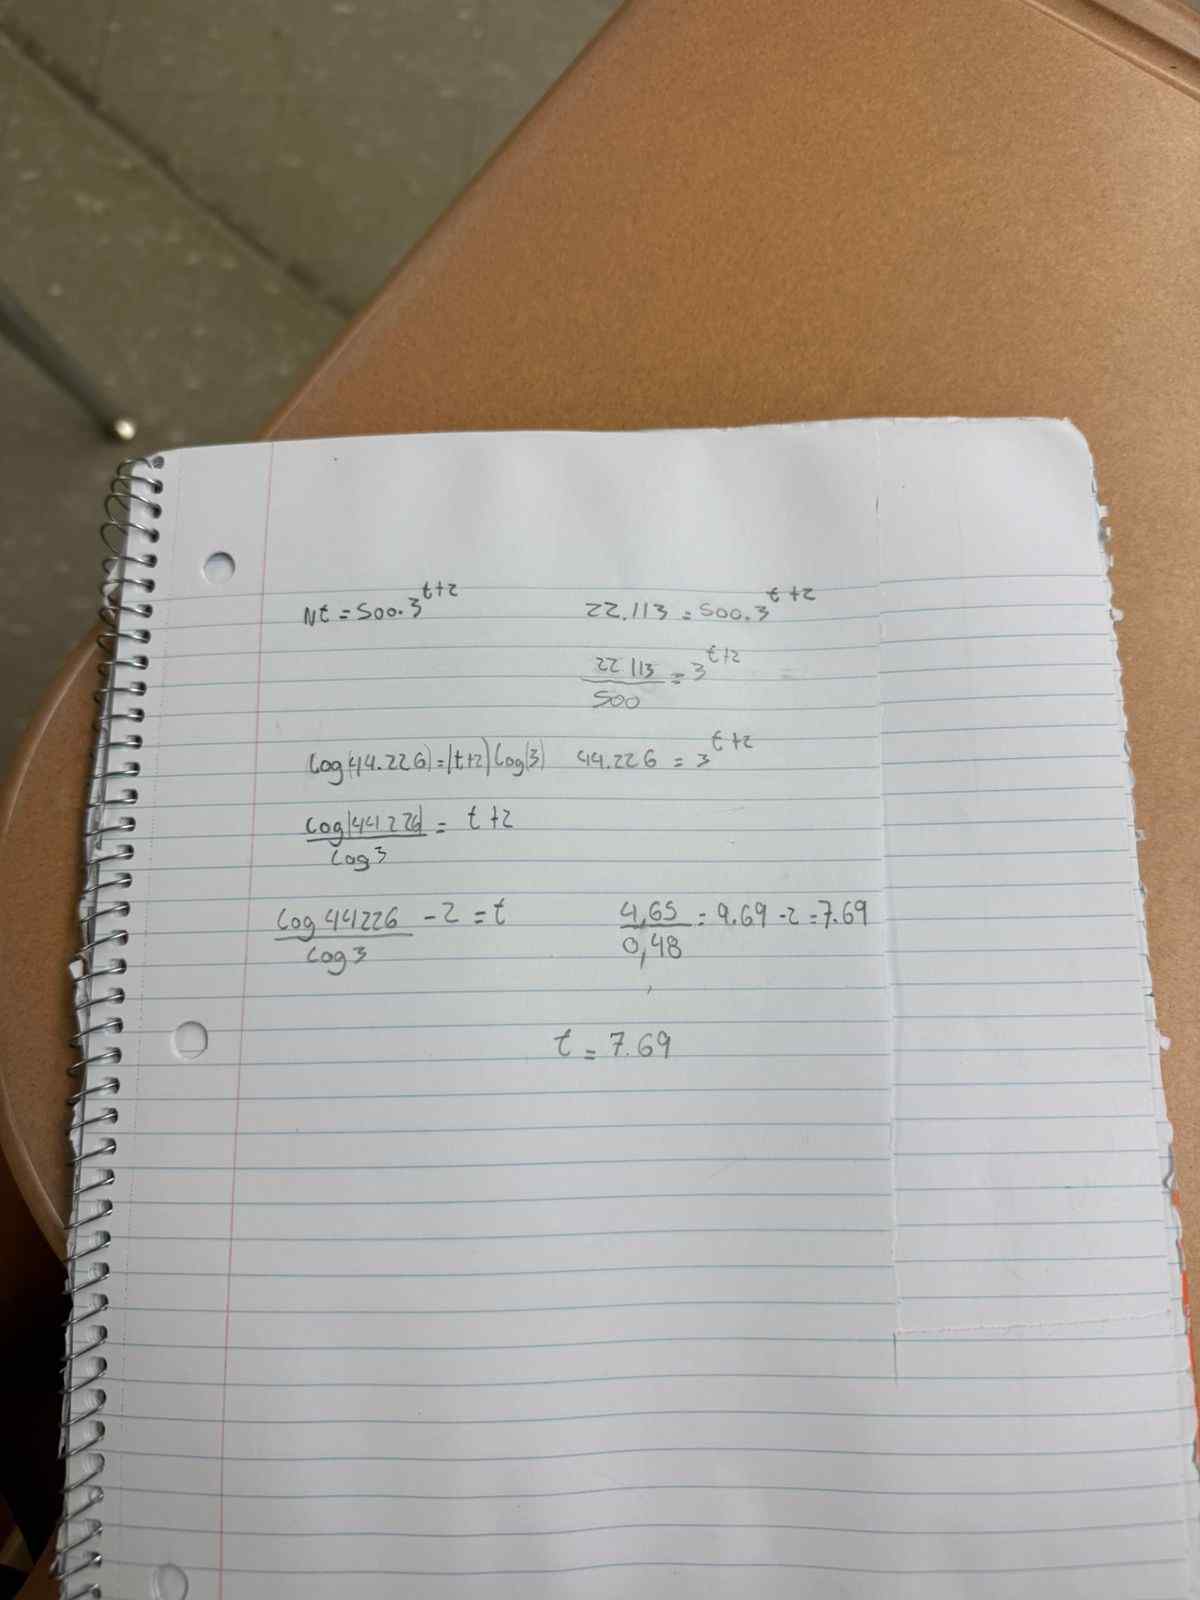 Nt = 500.3^t+2
22.113 = 500.3^t+2
22113/500 = 3^t+2
44.226 = 3^t+2
log(44.226) = (t+2) log(3)
log(44226)/log3 = t+2
log44226/log3 - 2 = t
4,65/0,48 = 9.69 - 2 = 7.69
t = 7.69